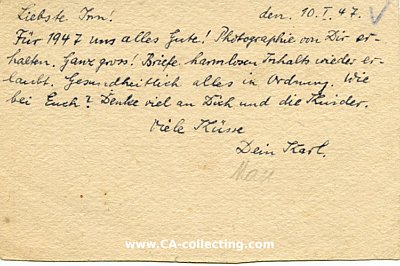 Liebste Irm! den. 10.I.47.
Für 1947 uns alles Gute! Photographie von Dir er-
halten. Ganz gross! Briefe harmlosen Inhalts wieder er-
laubt. Gesundheitlich alles in Ordnung. Wie
bei Euch? Denke viel an Dich und die Kinder.
Viele Küsse
Dein Karl.
www.CA-collecting.com